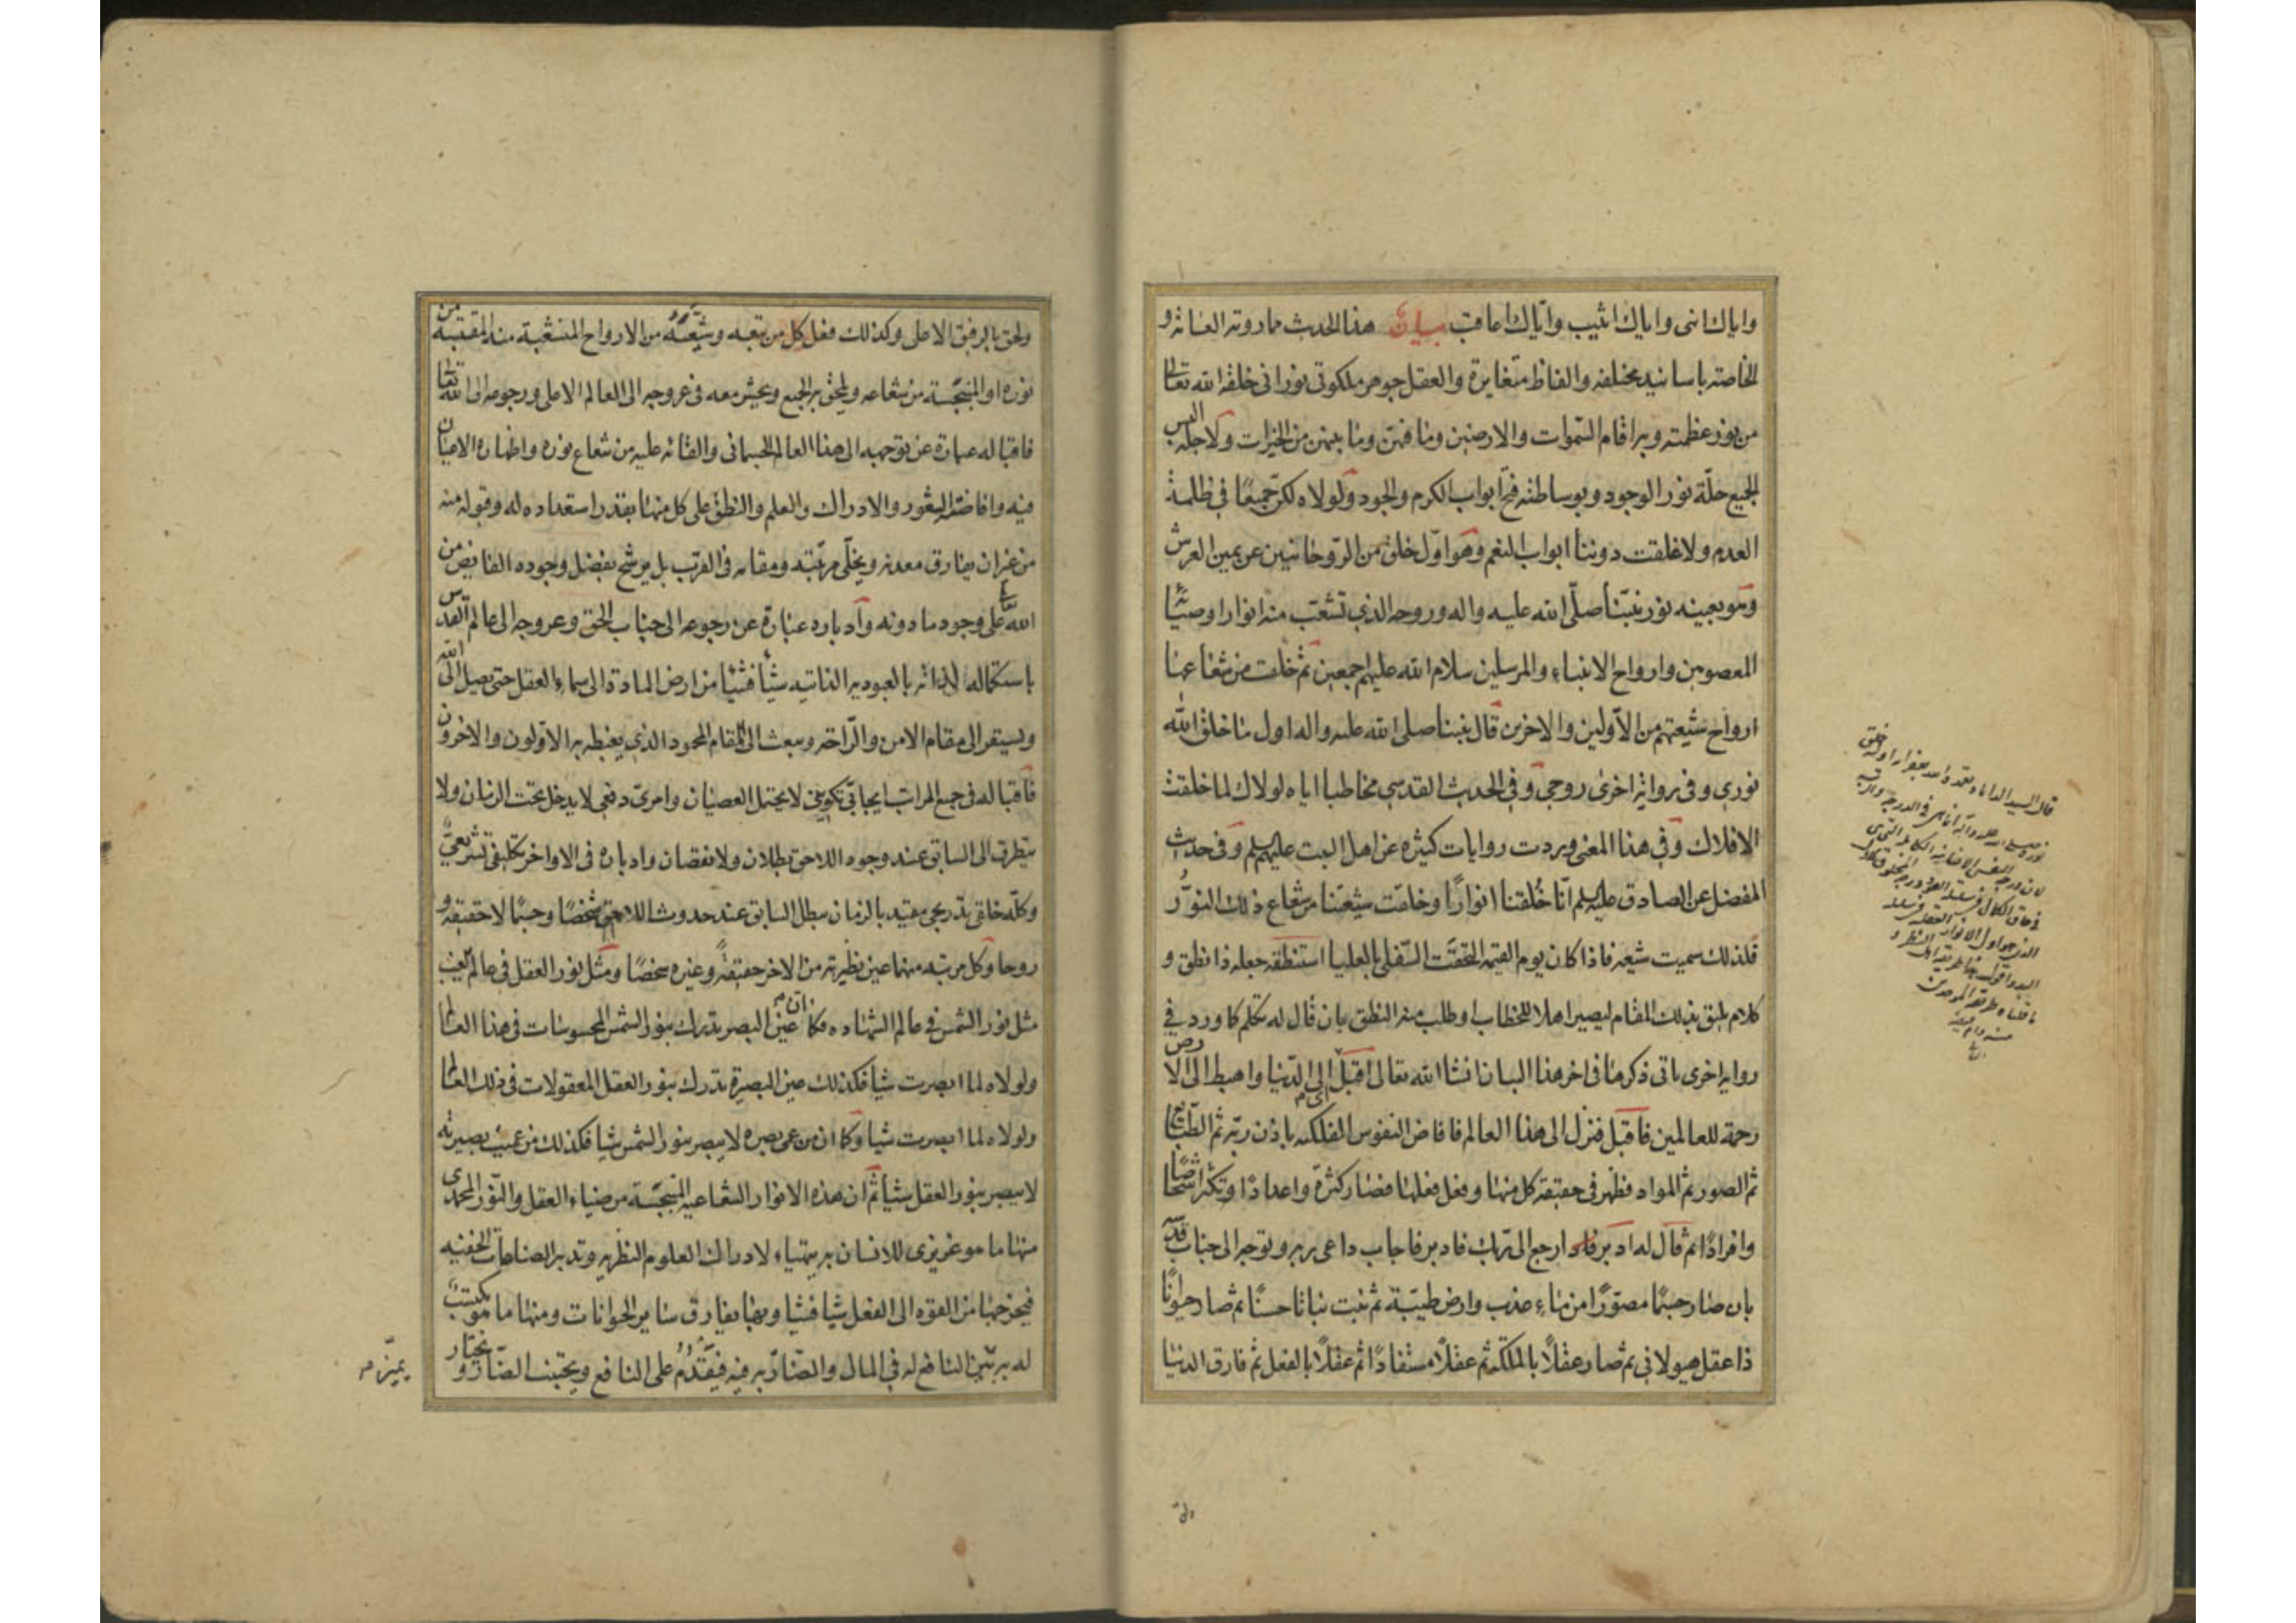 واياك انهى واياك اثيب واياك اعاقب بيان هذا الحديث مما روته العامة و
الخاصة باسانيد مختلفة والفاظ متغايرة والعقل جوهر ملكوتى نورانى خلقه الله تعالى
من نور عظمته وبه اقام السموات والارضين وما فيهن وما بينهن من الخيرات ولاجله البس
الجميع حلة نور الوجود وبوساطته فتح ابواب الكرم والجود ولولاه لكن جميعا فى ظلمة
العدم ولاغلقت دوننا ابواب النعم وهو اول خلق من الروحانيين عن يمين العرش
وهو بعينه نور نبينا صلى الله عليه واله وروحه الذي تشعب منه انوار اوصيائه
المعصومين وارواح الانبياء والمرسلين سلام الله عليهم اجمعين ثم خلقت من شعاعها
ارواح شيعتهم من الاولين والاخرين قال نبينا صلى الله عليه واله اول ما خلق الله
نوري وفى رواية اخرى روحي وفى الحديث القدسي مخاطبا اياه لولاك لما خلقت
الافلاك وفى هذا المعنى وردت روايات كثيرة عن اهل البيت عليهم وفى حديث
المفضل عن الصادق عليه انا خُلقنا انوارًا وخلقت شيعتنا من شعاع ذلك النور
فلذلك سميت شيعة فاذا كان يوم القيمة التحقت السفلى بالعليا استنطقه جعله ذا نطق و
كلام يليق بذلك المقام ليصير اهلا للخطاب او طلب منه النطق بان قال له تكلم كما ورد في
رواية اخرى ياتى ذكرها فى اخر هذا البيان انشا الله تعالى اقبل اى الى الدنيا واهبط الى الارض
رحمة للعالمين فاقبل فنزل الى هذا العالم فافاض النفوس الفلكية باذن ربه ثم الطبايع
ثم الصور ثم المواد فظهر فى حقيقة كل منها وفعل فعلها فصار كثرة واعدادًا وتكثر اشخاصًا
وافرادًا ثم قال له ادبر اى ارجع الى ربك فادبر فاجاب داعى ربه وتوجه الى جناب قدسه
بان صار جسمًا مصورًا من ماء عذب وارض طيبة ثم نبت نباتا حسنًا ثم صار حيوانًا
ذا عقل هيولانى ثم صار عقلًا بالملكة ثم عقلًا مستفادًا ثم عقلًا بالفعل ثم فارق الدنيا
قال السيد الداماد
ولحق بالرفيق الاعلى وكذلك فعل كل من تبعه وشيّعه من الارواح المنشعبة منه المقتبسة من
نوره او المنبجسة من شعاعه ويلحق به الجميع ويحشر معه فى عروجه الى العالم الاعلى ورجوعه الى الله تعالى
فاقباله عبارة عن توجهه الى هذا العالم الجسمانى والقائه عليه من شعاع نوره واظهاره الاعيان
فيه وافاضته الشعور والادراك والعلم والنطق على كل منها بقدر استعداده له وقبوله منه
من غير ان يفارق معدنه ويخلّى مرتبته ومقامه فى القرب بل يرشح بفضل وجوده الفايض من
الله على وجود ما دونه وادباره عبارة عن رجوعه الى جناب الحق وعروجه الى عالم القدس
باستكماله لذاته بالعبودية الذاتية شيئا فشيئا من ارض المادة الى سماء العقل حتى يصل الى الله
ويستقر الى مقام الامن والراحة ويبعث الى المقام المحمود الذي يغبطه به الاولون والاخرون
فاقباله فى جميع المراتب ايجابى تكوينى لا يحتمل العصيان وامرى دفعي لا يدخل تحت الزمان ولا
يتطرق الى السابق عند وجود اللاحق بطلان ولا نقصان وادباره فى الاواخر تكليفى تشريعيّ
وكله خلقى تدريجى مقيد بالزمان يبطل السابق عند حدوث اللاحق شخصًا وجسمًا لا حقيقة و
روحا وكل مرتبة منهما عين نظيرته من الاخر حقيقةً وغيره شخصًا ومثل نور العقل فى عالم الغيب
مثل نور الشمس فى عالم الشهادة فكما ان عين البصر يدرك بنور الشمس المحسوسات فى هذا العالم
ولولاه لما ابصرت شيأ فكذلك عين البصيرة تدرك بنور العقل المعقولات فى ذلك العالم
ولولاه لما ابصرت شيا وكما ان من عمى بصره لا يبصر بنور الشمس شيا فكذلك من عميت بصيرته
لا يبصر بنور العقل شيأ ثم ان هذه الانوار الشعاعية المنبجسة من ضياء العقل والنور المحمدى
منها ما هو غريزى للانسان به يتهياء لادراك العلوم النظرية وتدبير الصناعات الخفية
فيخرجها من القوة الى الفعل شيا فشيا وبها يفارق ساير الحيوانات ومنها ما هو مكتسب
له به يتبين النافع له فى المال والضار به فيه فيقدم على النافع ويجتنب الضار ويختار
يميز